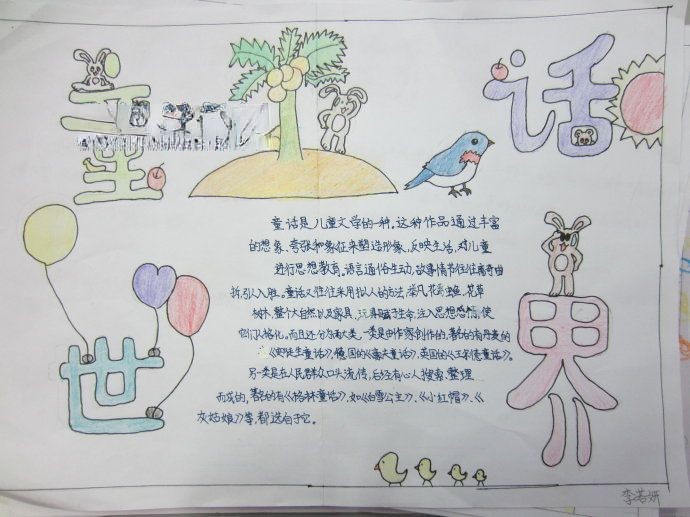 童话
世界
童话是儿童文学的一种,这种作品通过丰富
的想象、夸张和象征来塑造形象、反映生活,对儿童
进行思想教育。语言通俗生动,故事情节往往离奇曲
折,引人入胜。童话又往往采用拟人的方法,举凡花鸟虫鱼,花草
树木,整个大自然以及家具、玩具赋于生命,注入思想感情,使
它们人格化。而且还分为两大类,一类是由作家创作的,著名的有丹麦的
《安徒生童话》,德国的《豪夫童话》,英国的《王尔德童话》。
另一类是在人民群众口头流传,后经有心人搜索、整理
而成的,著名的有《格林童话》,如《白雪公主》、《小红帽》、《
灰姑娘》等,都选自于它。
李若妍